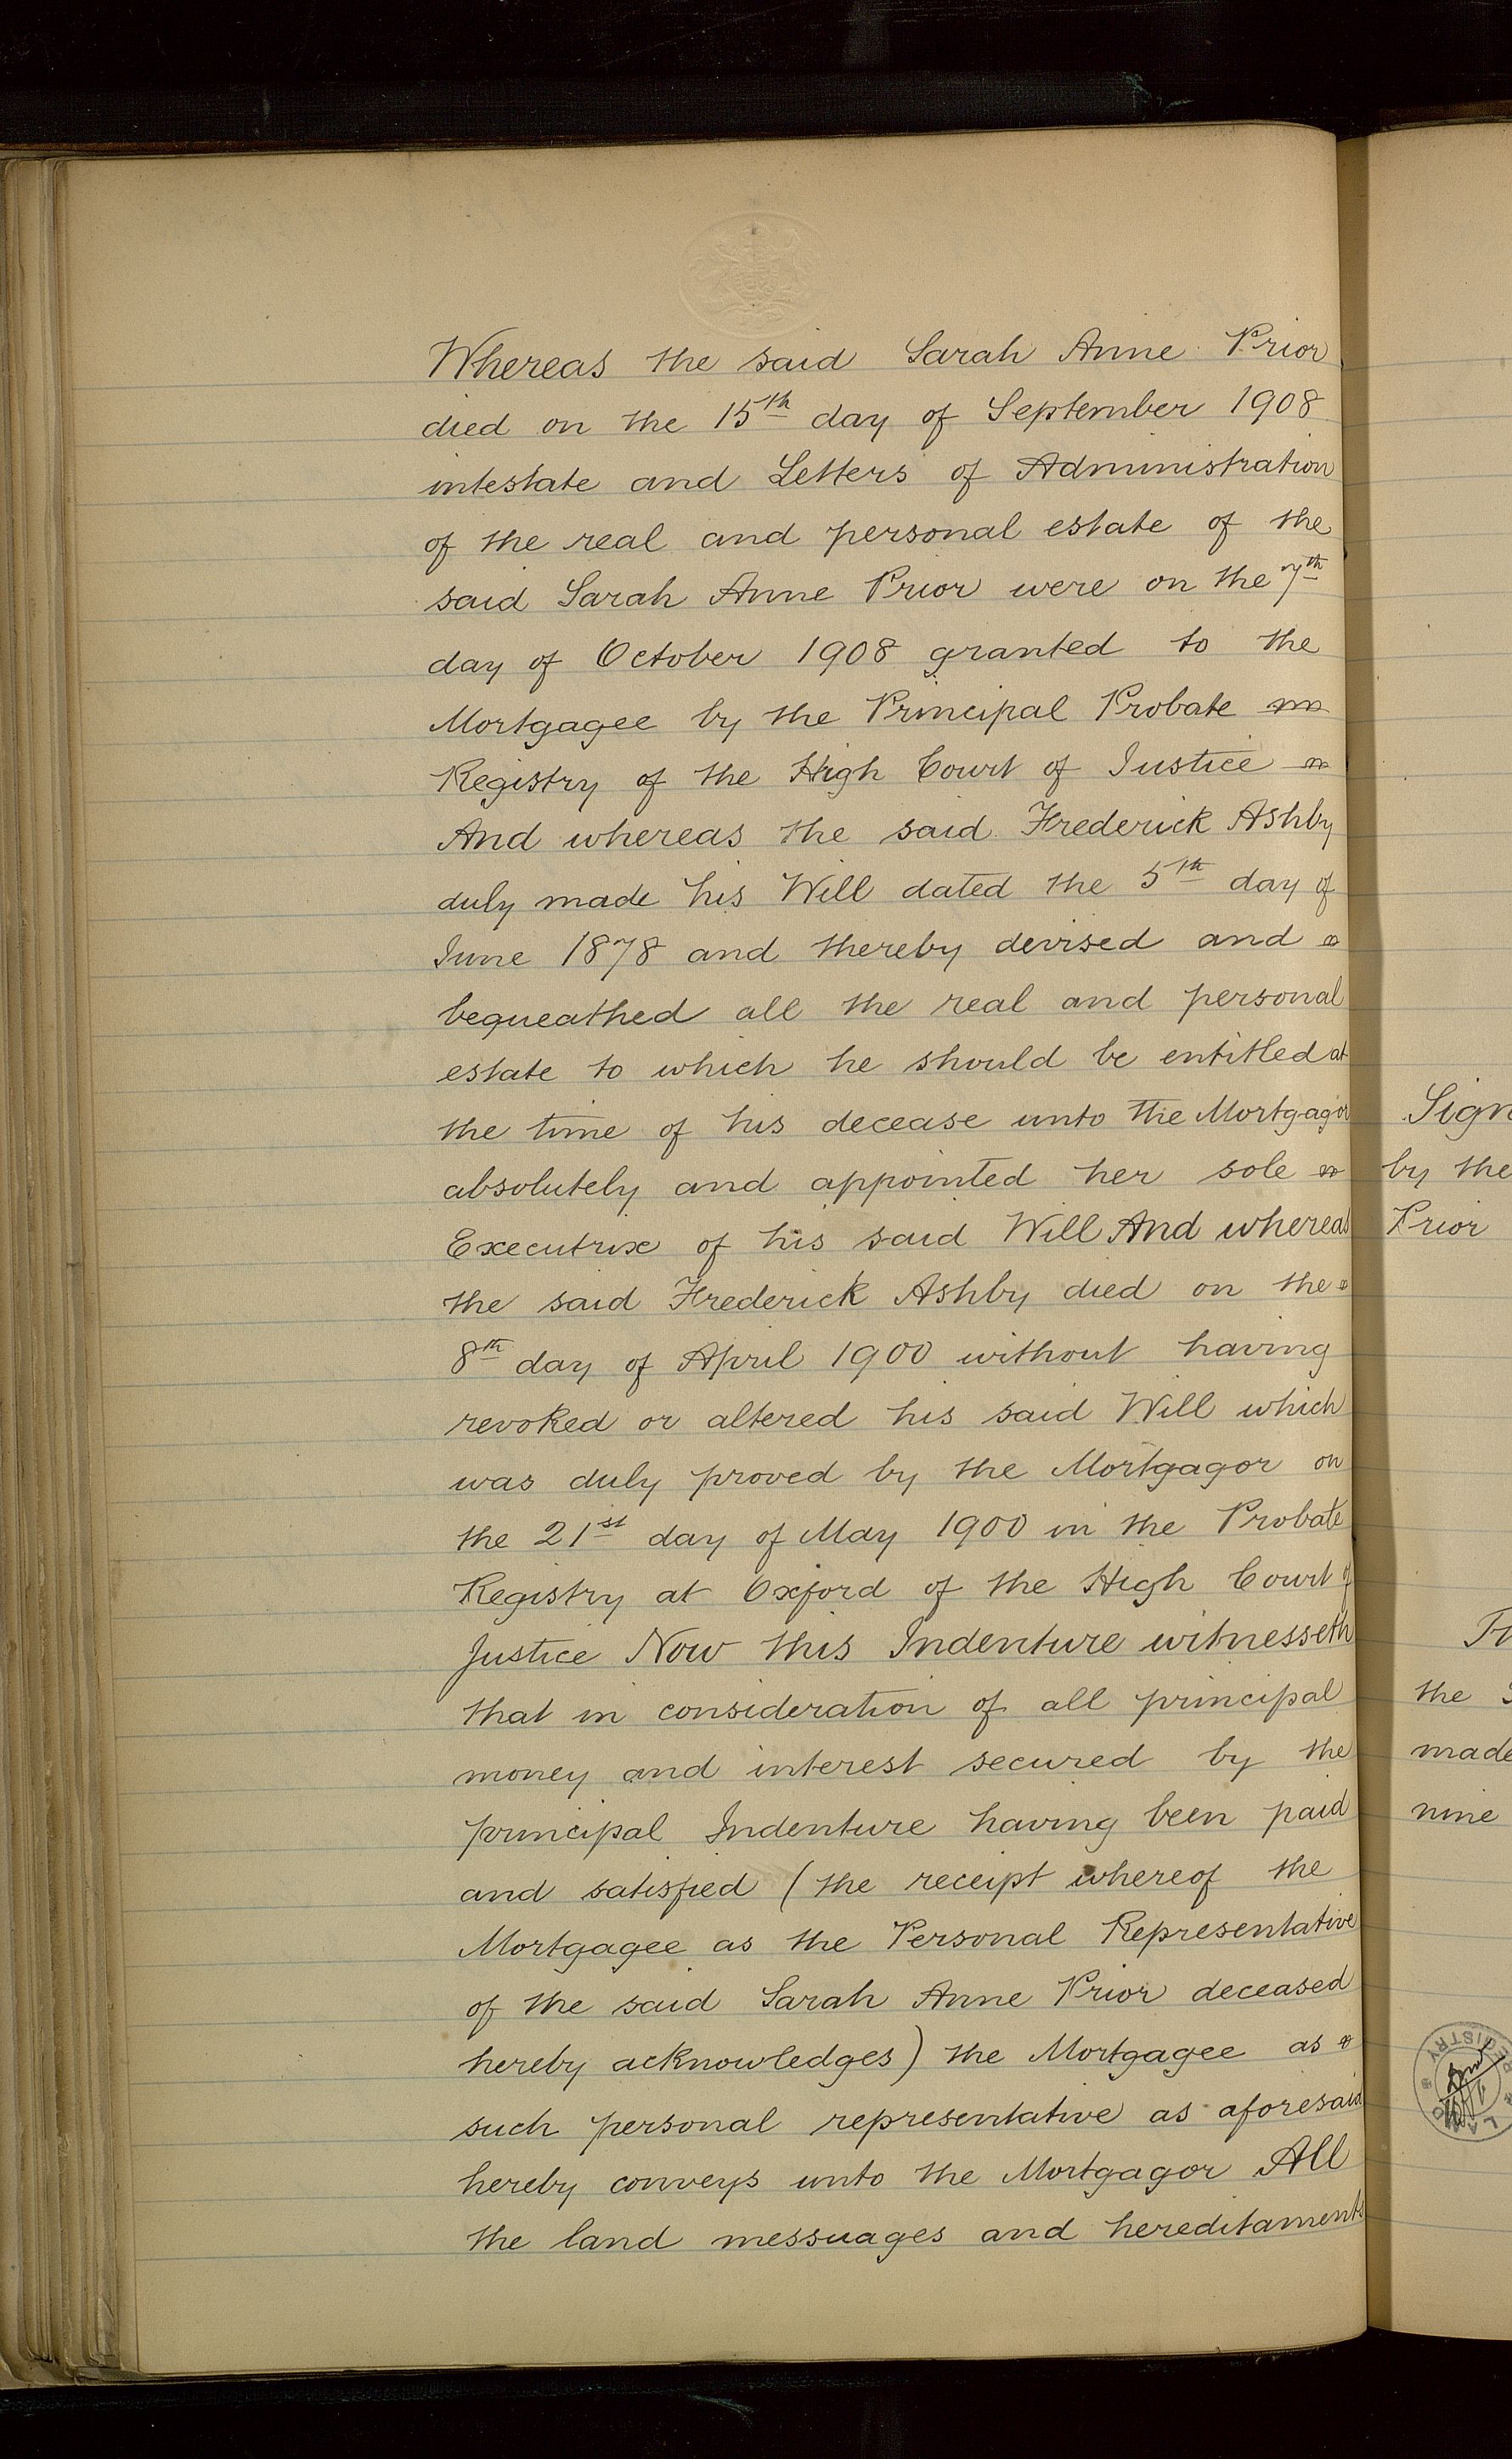 Whereas the said Sarah Anne Prior
died on the 15th day of September 1908
intestate and Letters of Administration
of the real and personal estate of the
said Sarah Anne Prior were on the 7th
day of October 1908 granted to the
Mortgagee by the Principal Probate
Registry of the High Court of Justice
And whereas the said Frederick Ashby
duly made his Will dated the 5th day of
June 1878 and thereby devised and
bequeathed all the real and personal
estate to which he should be entitled at
the time of his decease unto the Mortgagor
absolutely and appointed her sole
Executrix of his said Will And whereas
the said Frederick Ashby died on the
8th day of April 1900 without having
revoked or altered his said Will which
was duly proved by the Mortgagor on
the 21st day of May 1900 in the Probate
Registry at Oxford of the High Court of
Justice Now this Indenture witnesseth
that in consideration of all principal
money and interest secured by the
principal Indenture having been paid
and satisfied (the receipt whereof the
Mortgagee as the Personal Representative
of the said Sarah Anne Prior deceased
hereby acknowledges) the Mortgagee as
such personal representative as aforesaid
hereby conveys unto the Mortgagor All
the land messuages and hereditaments
Sign
by the
Prior
the
made
nine